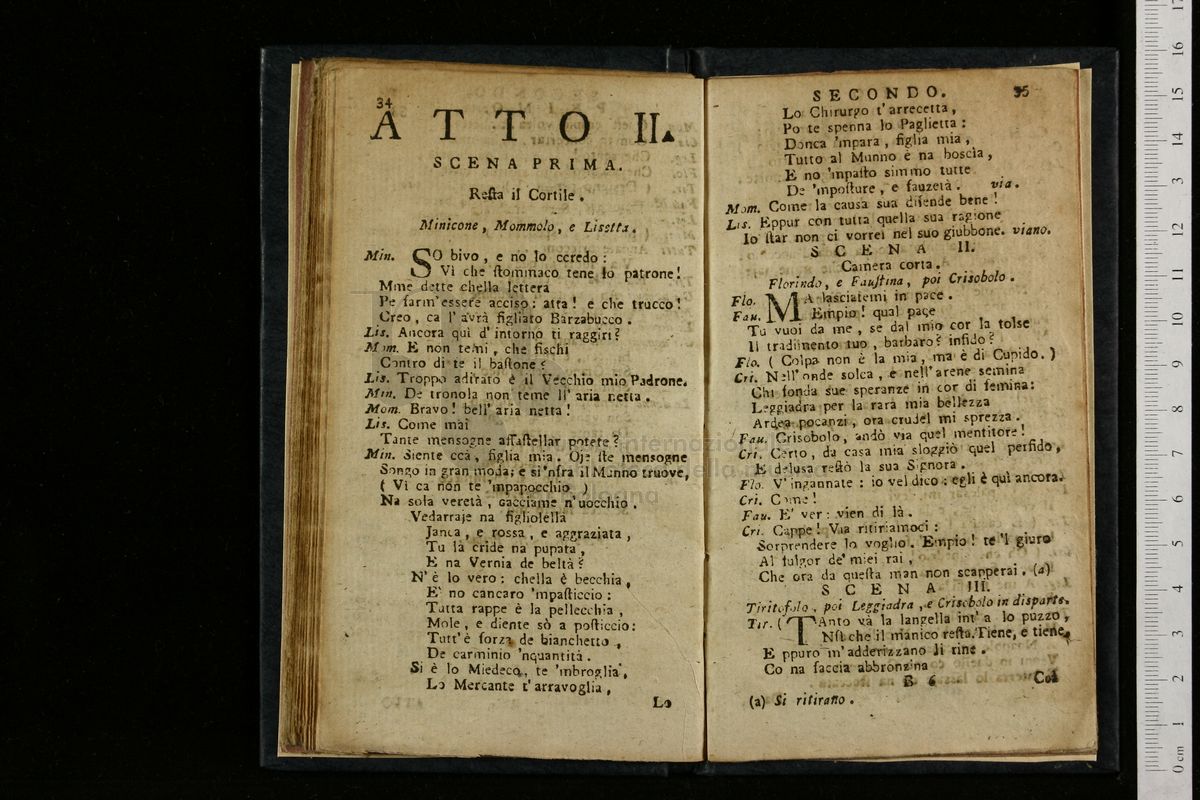 34
ATTO II.
SCENA PRIMA.
Resta il Cortile.
Minicone, Mommolo, e Lisetta.
Min. SO bivo, e no lo ccredo:
Vì che stommaco tene lo patrone!
Mme dette chella lettera
Pe farm'essere acciso: atta! e che trucco!
Creo, ca l'avrà figliato Barzabucco.
Lis. Ancora quì d'intorno ti raggiri?
Mom. E non temi, che fischi
Contro di te il bastone?
Lis. Troppo adirato è il Vecchio mio Padrone.
Min. De tronola non teme ll'aria netta.
Mom. Bravo! bell'aria netta!
Lis. Come mai
Tante mensogne affastellar potete?
Min. Siente ccà, figlia mia. Oje ste mensogne
Songo in gran moda; e si'nfra il Munno truove,
(Vì ca non te 'mpapocchio)
Na sola veretà, cacciame n'uocchio.
Vedarraje na figliolella
Janca, e rossa, e aggraziata,
Tu là cride na pupata,
E na Vernia de beltà?
N'è lo vero: chella è becchia,
E' no cancaro 'mpasticcio:
Tutta rappe è la pellecchia,
Mole, e diente sò a posticcio:
Tutt'è forza de bianchetto,
De carminio 'nquantità.
Si è lo Miedeco, te 'mbroglia,
Lo Mercante t'arravoglia,
Lo
SECONDO. 35
Lo Chirurgo t'arrecetta,
Po te spenna lo Paglietta:
Donca 'mpara, figlia mia,
Tutto al Munno è na boscìa,
E no 'mpasto simmo tutte
De 'mposture, e fauzetà. via.
Mom. Come la causa sua difende bene!
Lis. Eppur con tutta quella sua ragione
Io star non ci vorrei nel suo giubbone. viano.
SCENA II.
Camera corta.
Florindo, e Faustina, poi Crisobolo.
Flo. MA lasciatemi in pace.
Fau. Empio! qual pace
Tu vuoi da me, se dal mio cor la tolse
Il tradimento tuo, barbaro? infido?
Flo. (Colpa non è la mia, ma è di Cupido.)
Cri. Nell'onde solca, e nell'arene semina
Chi fonda sue speranze in cor di femina:
Leggiadra per la rara mia bellezza
Ardea pocanzi, ora crudel mi sprezza.
Fau. Crisobolo, andò via quel mentitore!
Cri. Certo, da casa mia sloggiò quel perfido,
E delusa restò la sua Signora.
Flo. V'ingannate: io vel dico: egli è quì ancora.
Cri. Come!
Fau. E' ver: vien di là.
Cri. Cappe! Via ritiriamoci:
Sorprendere lo voglio. Empio! te 'l giuro
Al fulgor de' miei rai,
Che ora da questa man non scapperai. (a)
SCENA III.
Tiritofolo, poi Leggiadra, e Crisobolo in disparte.
Tir. (TAnto và la langella int'a lo puzzo,
Nsì che il manico resta. Tiene, e tiene,
E ppuro m'adderizzano li rine.
Co na faccia abbronzina
B 6 Col
(a) Si ritirano.